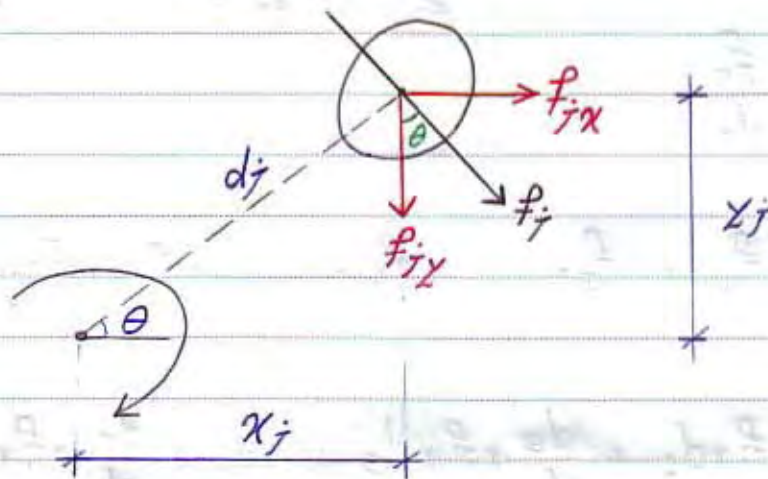 f_jx
θ
d_j
f_j
f_jy
y_j
θ
x_j